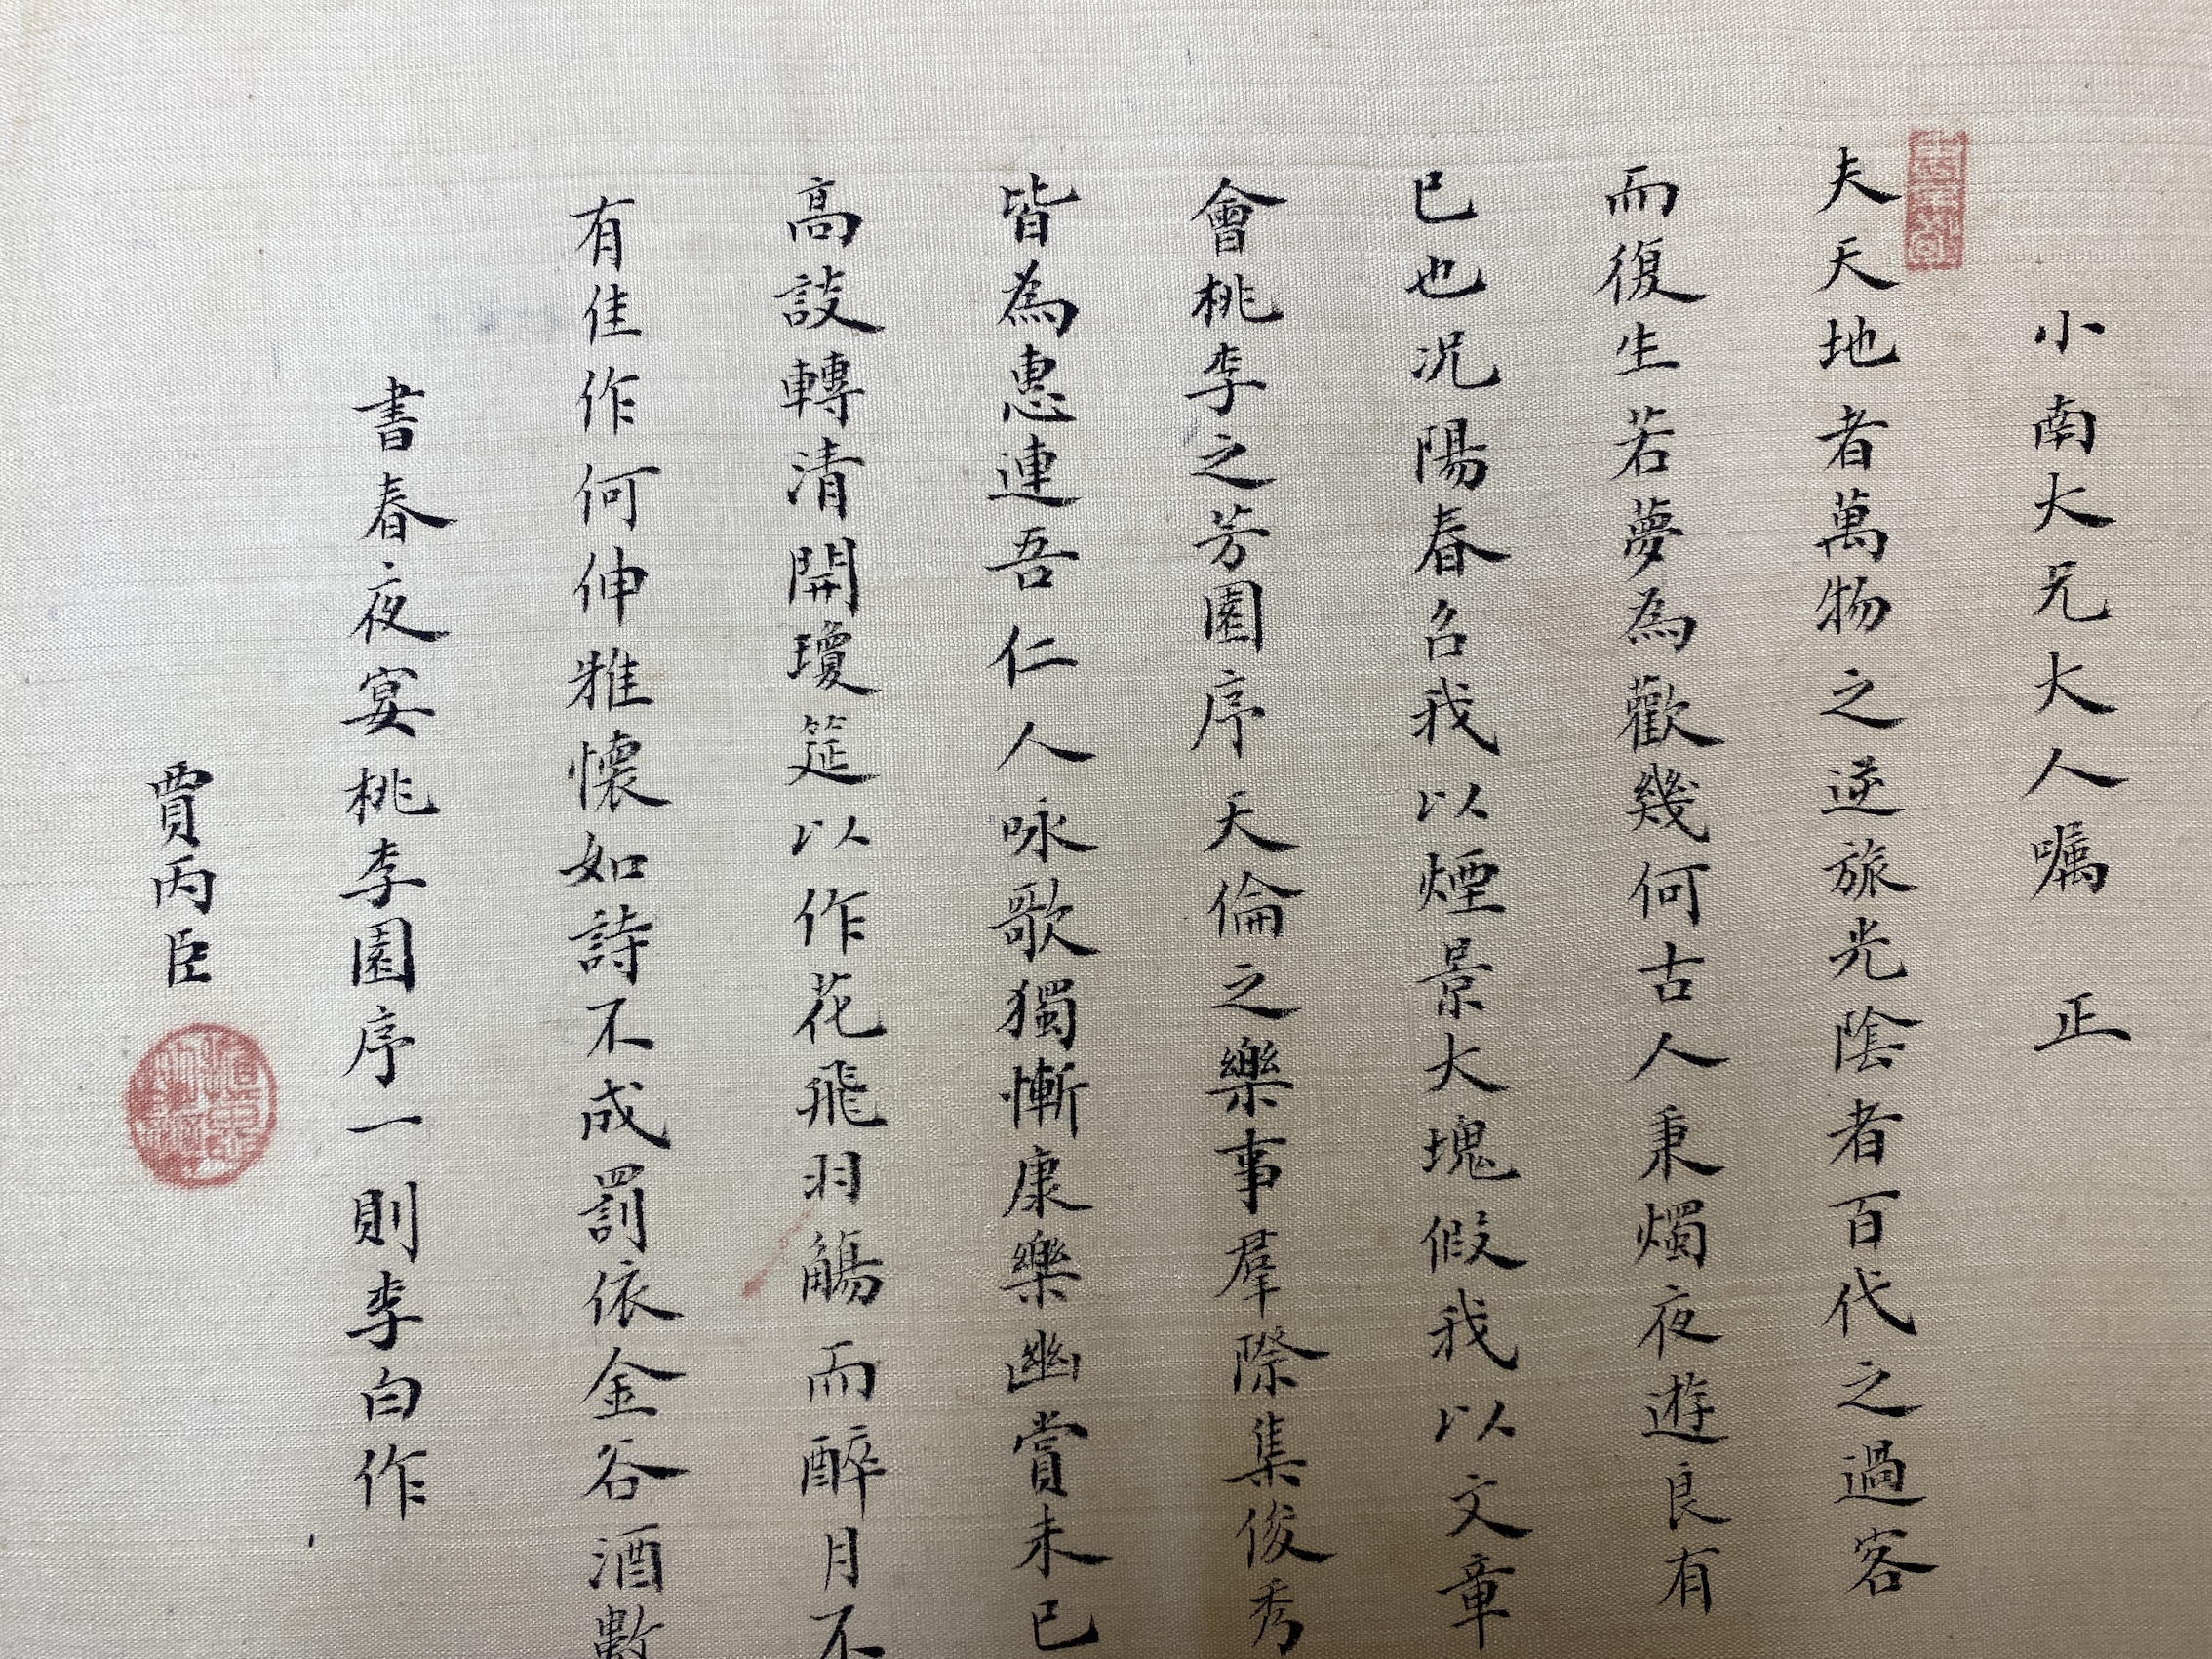 小南大兄大人嘱 正
夫天地者萬物之逆旅光陰者百代之過客
而復生若夢為歡幾何古人秉燭夜遊良有
已也况陽春召我以煙景大塊假我以文章
會桃李之芳園序天倫之樂事羣際集俊秀
皆為惠連吾仁人咏歌獨慚康樂幽賞未已
高談轉清開瓊筵以作花飛羽觴而醉月不
有佳作何伸雅懷如詩不成罰依金谷酒數
書春夜宴桃李園序一則李白作
賈丙臣